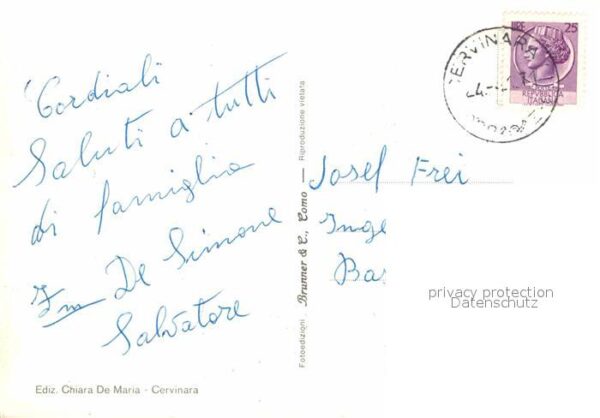 Cordiali
Saluti a tutti
di famiglia
De Simone
Salvatore
Ediz. Chiara De Maria - Cervinara
Fotoedizioni Brunner & C., Como — Riproduzione vietata
CERVINARA
LIRE 25
REPUBBLICA
ITALIANA
Josef Frei
Inge
Bas
privacy protection
Datenschutz